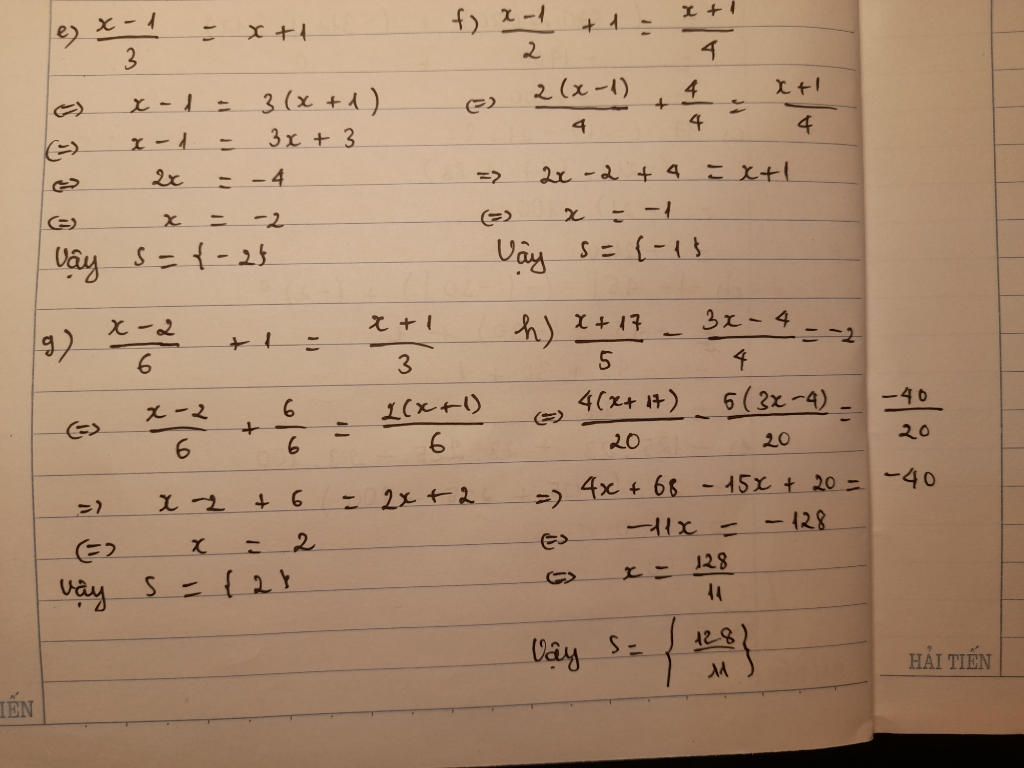 e) (x - 1)/3 = x + 1
<=> x - 1 = 3(x + 1)
<=> x - 1 = 3x + 3
<=> 2x = -4
<=> x = -2
Vậy S = {-2}
f) (x - 1)/2 + 1 = (x + 1)/4
<=> 2(x - 1)/4 + 4/4 = (x + 1)/4
=> 2x - 2 + 4 = x + 1
<=> x = -1
Vậy S = {-1}
g) (x - 2)/6 + 1 = (x + 1)/3
<=> (x - 2)/6 + 6/6 = 2(x + 1)/6
=> x - 2 + 6 = 2x + 2
<=> x = 2
Vậy S = {2}
h) (x + 17)/5 - (3x - 4)/4 = -2
<=> 4(x + 17)/20 - 5(3x - 4)/20 = -40/20
=> 4x + 68 - 15x + 20 = -40
<=> -11x = -128
<=> x = 128/11
Vậy S = {128/11}
HẢI TIẾN
IẾN